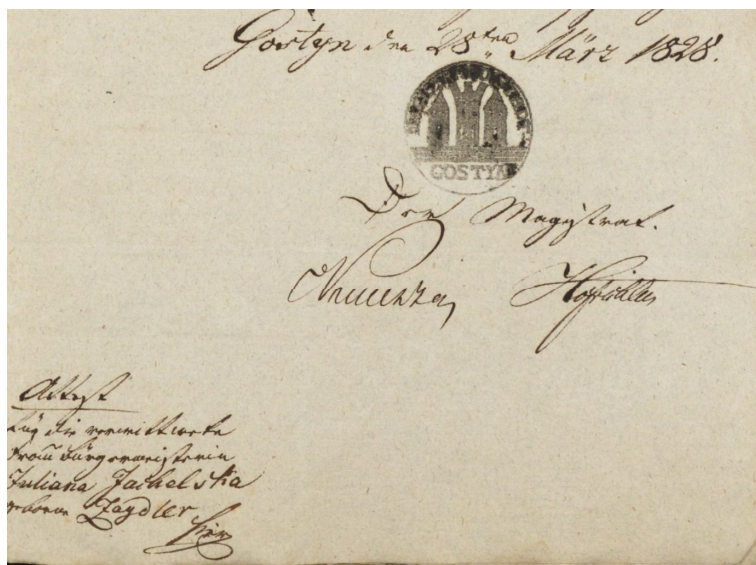 Gostyn den 28ten März 1828.
GOSTYN
Der Magistrat.
Attest
für die verwittwete
Frau Bürgermeisterin
Juliana Jachelska
geborne Zaydler
hier